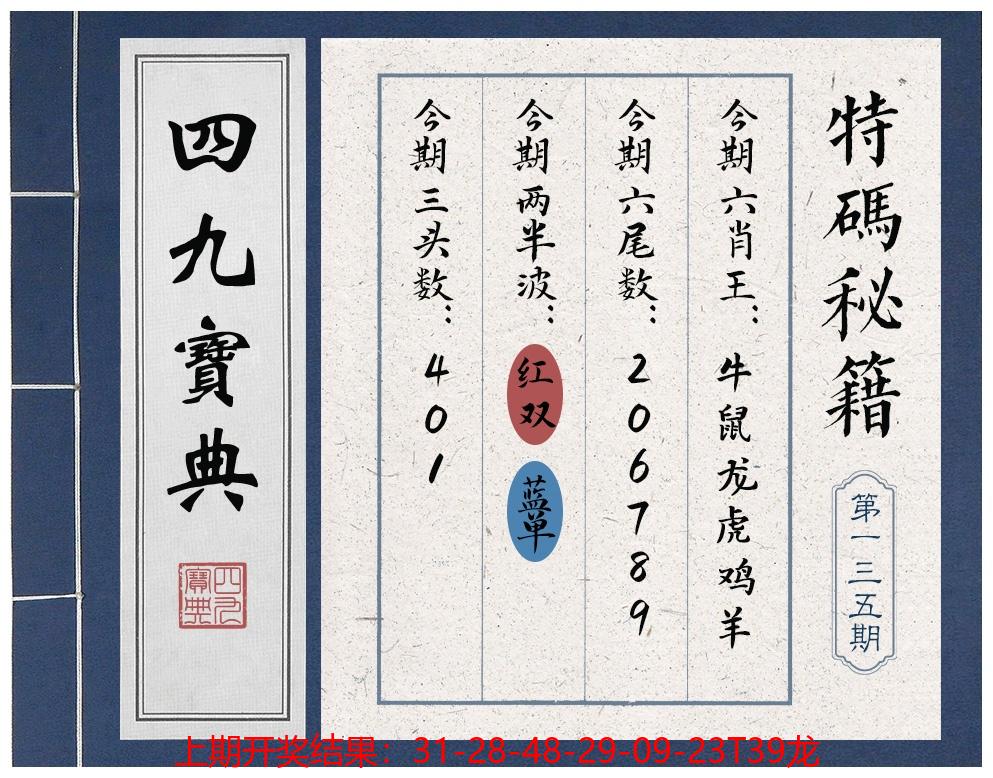 特碼秘籍
第一三五期
今期六肖王：牛鼠龙虎鸡羊
今期六尾数：206789
今期两半波：红双 蓝单
今期三头数：401
四九寶典
四九寶典
上期开奖结果：31-28-48-29-09-23T39龙